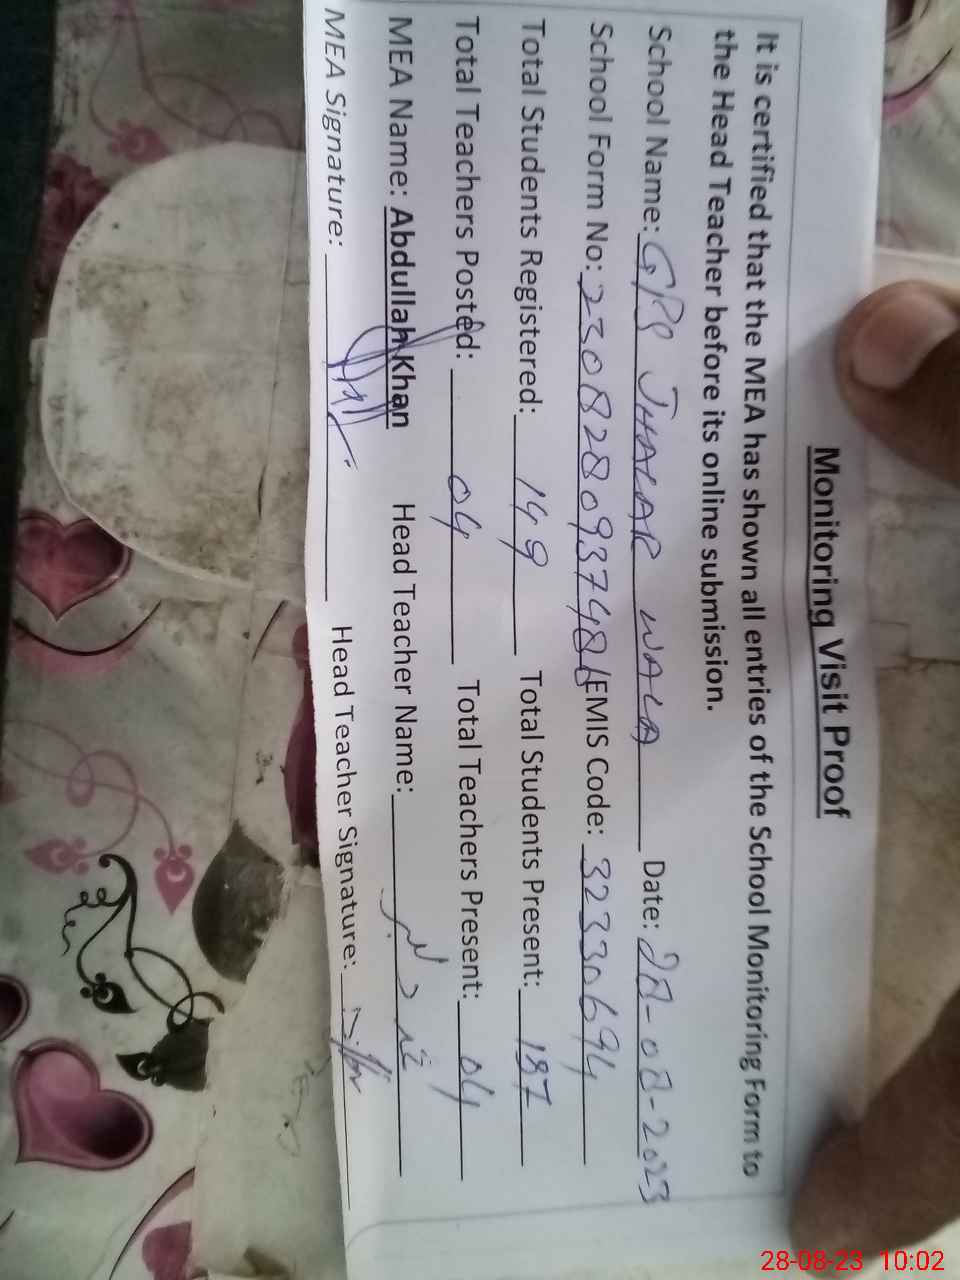 Monitoring Visit Proof
It is certified that the MEA has shown all entries of the School Monitoring Form to
the Head Teacher before its online submission.
School Name: GPS JHALAR WALA Date: 28-08-2023
School Form No: 2308280937486 EMIS Code: 32330694
Total Students Registered: 149 Total Students Present: 137
Total Teachers Posted: 04 Total Teachers Present: 04
MEA Name: Abdullah Khan Head Teacher Name:
MEA Signature: Head Teacher Signature:
28-08-23 10:02